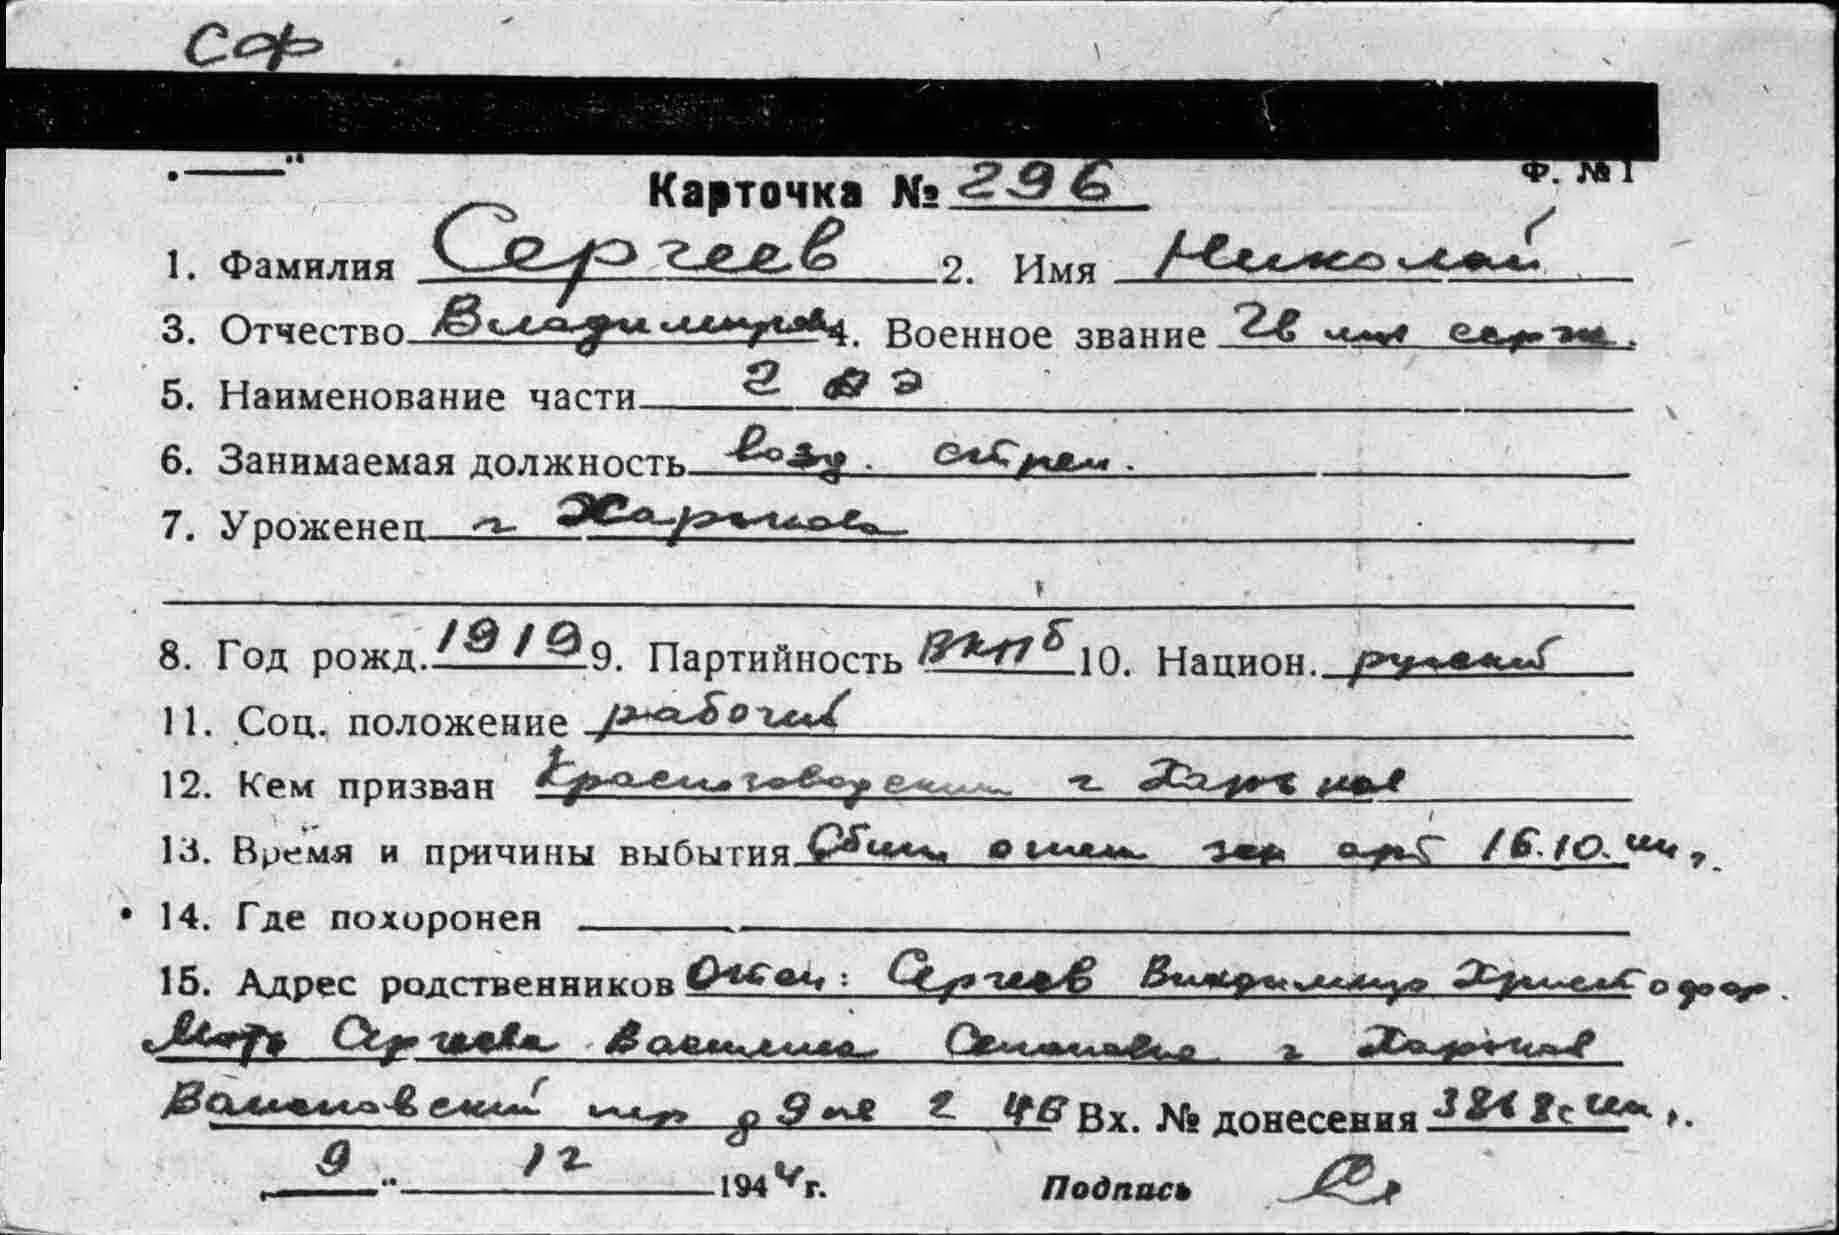 СФ
Ф. № 1
Карточка № 296
1. Фамилия Сергеев 2. Имя Николай
3. Отчество Владимиров 4. Военное звание Гв мл серж.
5. Наименование части 2 АЭ
6. Занимаемая должность возд. стрел.
7. Уроженец г Харькова
8. Год рожд. 1919 9. Партийность ВКПб 10. Национ. русский
11. Соц. положение рабочий
12. Кем призван г Харьков
13. Время и причины выбытия Сбит огнем зен арт 16.10.
14. Где похоронен
15. Адрес родственников Отец: Сергеев Владимир Христофор.
Мать Сергеева Василиса г Харьков
пер д 9 Вх. № донесения
9 " 12 1944 г. Подпись